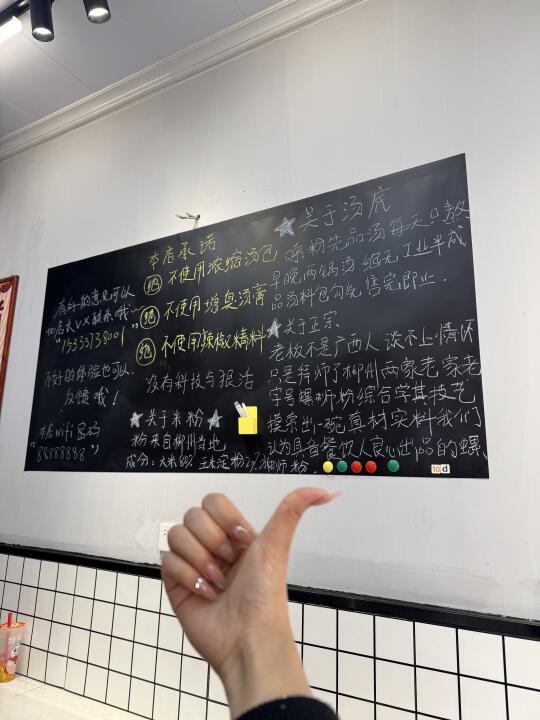 有好的意见可以
加店长VX联系哦~
"19333138001"
不好的体验也可以
反馈哦！
本店wifi密码
"88888888"
本店承诺
绝 不使用浓缩汤包
绝 不使用增臭汤膏
绝 不使用辣椒精料
没有科技与狠活
关于米粉
粉来自柳州当地
成分：大米80% 玉米淀粉2
关于汤底
嗦粉先品汤每天只熬
早晚两锅汤 绝无工业半成
品汤料包勾兑 售完即止.
关于正宗
老板不是广西人 谈不上情怀
只是拜师了柳州两家老家老
字号螺蛳粉综合学其技艺
摸索出一碗真材实料我们
认为具备餐饮人良心出品的螺
蛳粉.
10 d